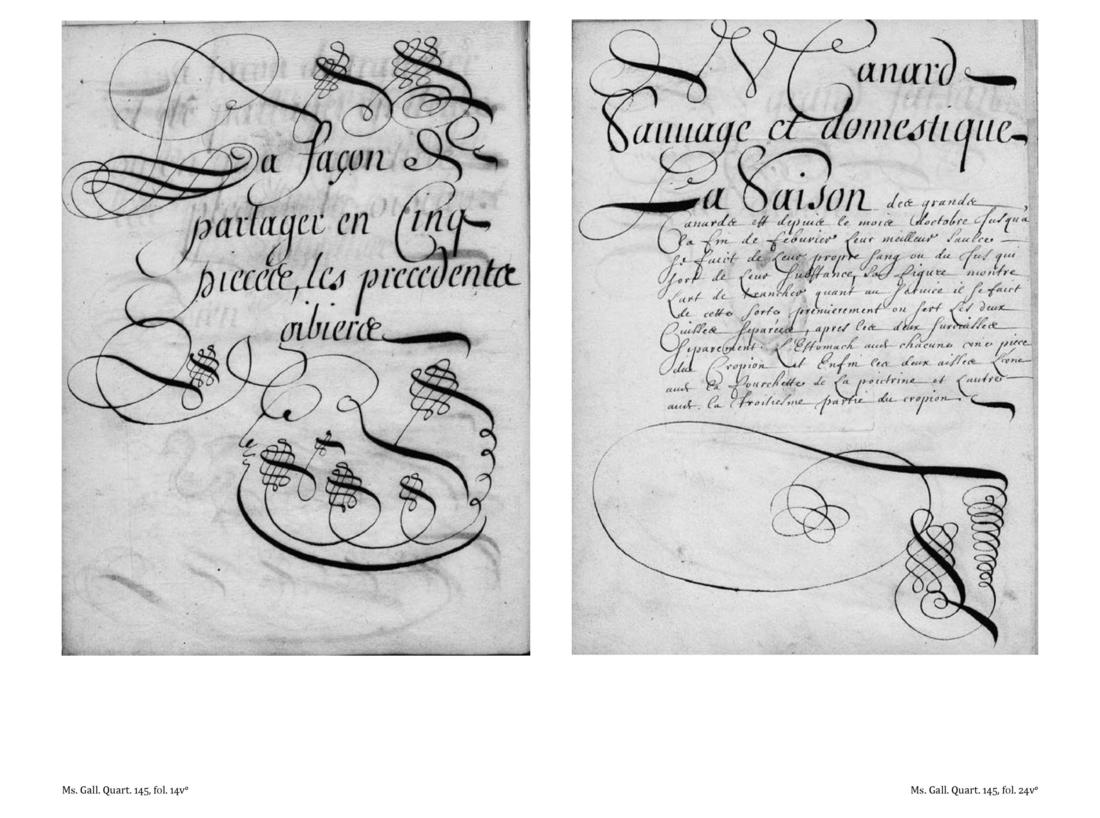 La façon De
partager en Cinq
pieces, les precedents
gibiers
Canard
Sauuage et domestique
La Saison des grands
Canards est depuis le mois d'octobre Jusqu'a
la fin de feburier Leur meilleur Saulce
Se faict de Leur propre sang ou du Jus qui
sort de Leur Substance, Sa figure montre
L'art de trancher quant au Seruice il se faict
de cette sorte premierement on sert Les deux
Cuisses Separées, apres les deux surcuisses
Separement. L'Estomach aud chacune vne piece
du Cropion Et Enfin les deux aisles L'vne
aud La fourchette de La poictrine et L'autre
aud. la troisiesme partie du cropion.
Ms. Gall. Quart. 145, fol. 14v°
Ms. Gall. Quart. 145, fol. 24v°